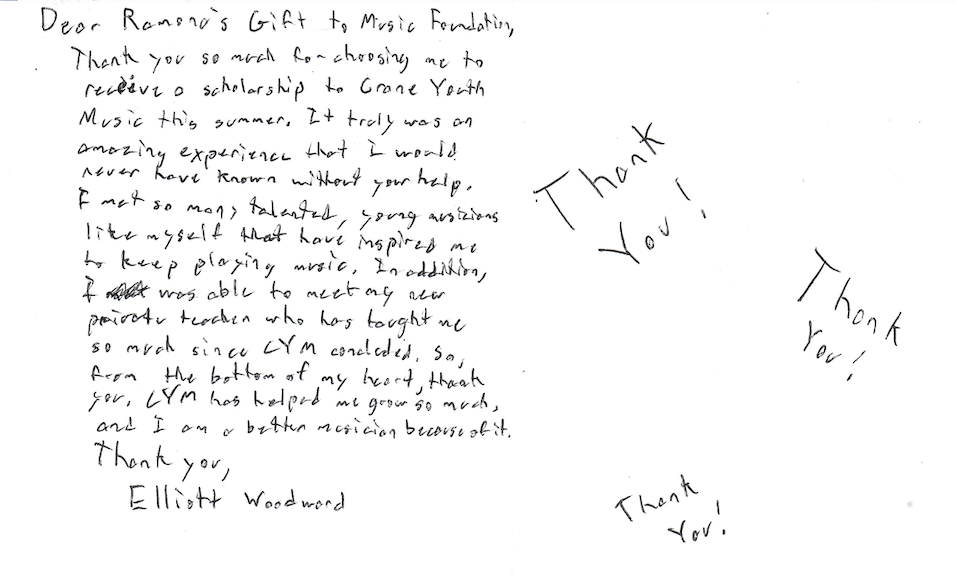 Dear Ramona's Gift to Music Foundation,
Thank you so much for choosing me to
receive a scholarship to Crane Youth
Music this summer. It truly was an
amazing experience that I would
never have known without your help.
I met so many talented, young musicians
like myself that have inspired me
to keep playing music. In addition,
I was able to meet my new
private teacher who has taught me
so much since CYM concluded. So,
from the bottom of my heart, thank
you. CYM has helped me grow so much,
and I am a better musician because of it.
Thank you,
Elliott Woodward
Thank
You!
Thank
You!
Thank
You!